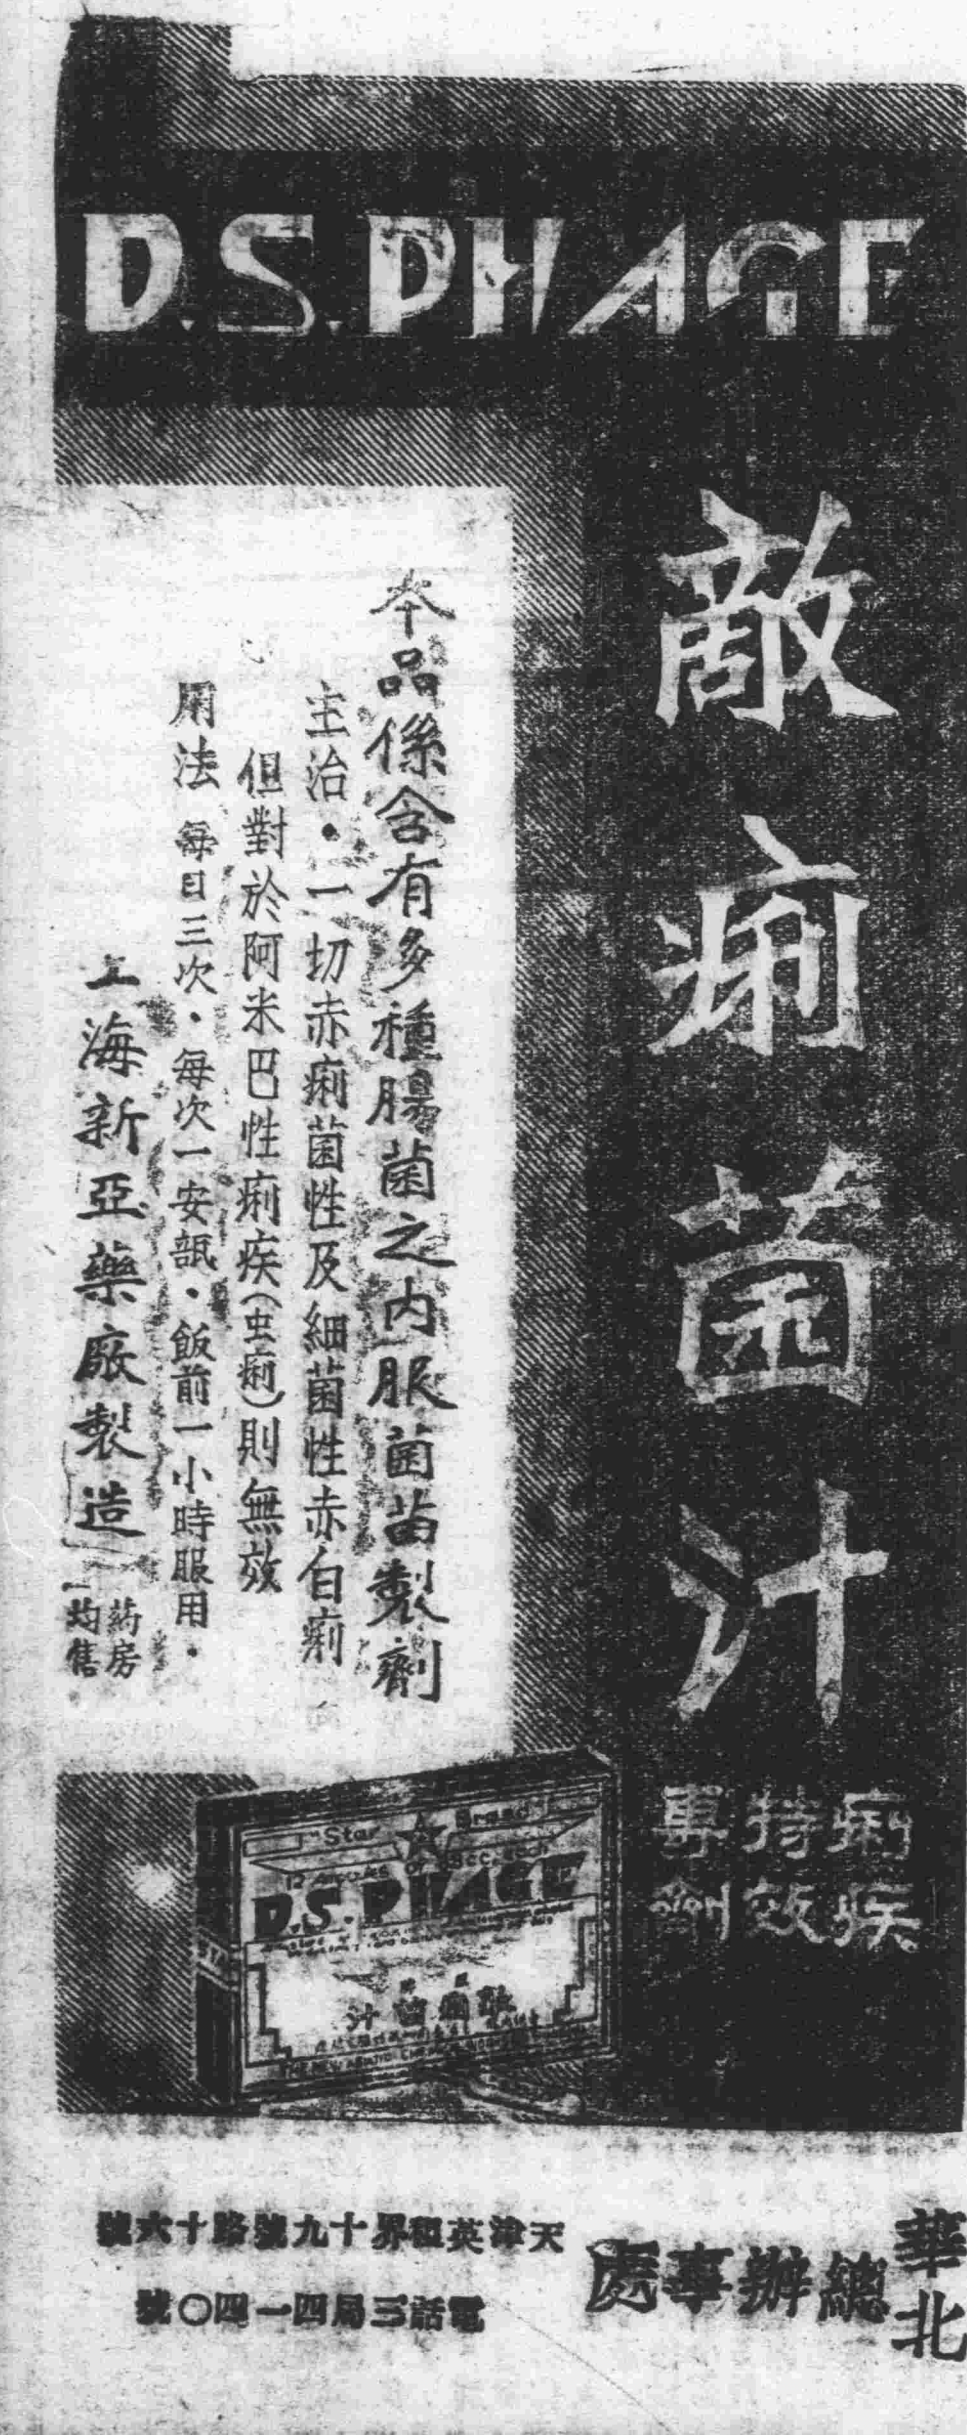 D.S.PHAGE
敵痢菌汁
痢疾
特效
專劑
本品係含有多種腸菌之內服菌苗製劑
主治・一切赤痢菌性及細菌性赤白痢
但對於阿米巴性痢疾(虫痢)則無效
用法 每日三次・每次一安瓿・飯前一小時服用・
上海新亞藥廠製造
药房
均售
Star Brand
D.S. PHAGE
敵痢菌汁
華北
總辦事處
天津英租界十九號路十六號
電話三局四一四〇號